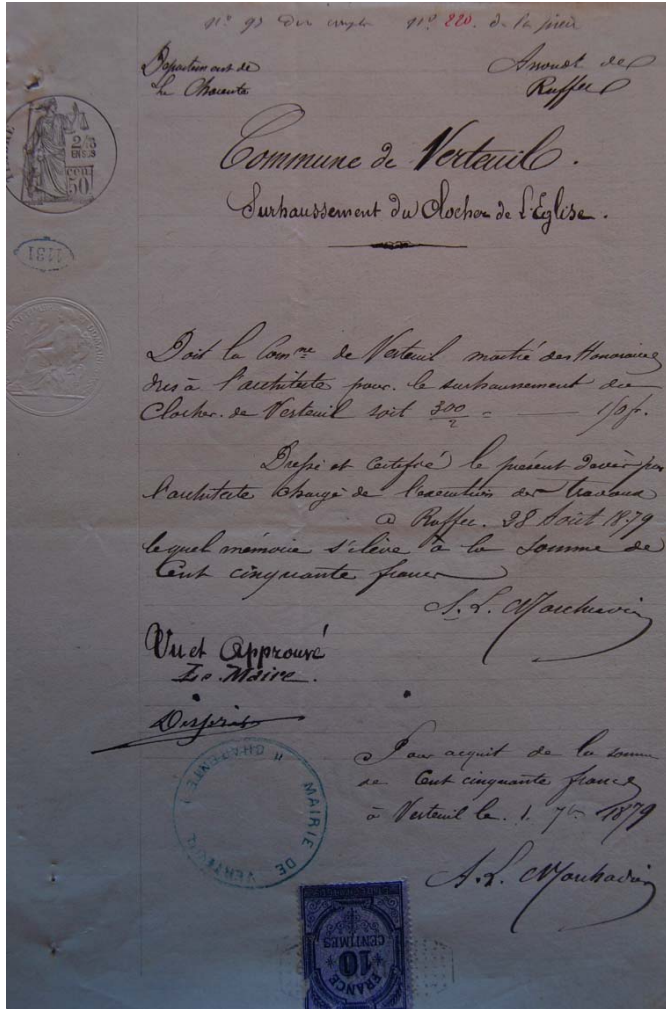 n° 93 du compte n° 220. de la pièce
Département de
la Charente
Arrondt de
Ruffec
Commune de Verteuil.
Surhaussement du Clocher de l'Église.
2/10
EN SUS
50
1131
Doit la Comne de Verteuil moitié des Honoraires
dus à l'architecte pour le surhaussement du
Clocher de Verteuil soit 300/2 = 150 f.
Dressé et Certifié le présent devis par
l'architecte chargé de l'exécution des travaux
à Ruffec. 28 Août 1879
lequel mémoire s'élève à la somme de
Cent cinquante francs
Vu et Approuvé
Le Maire.
Pour acquit de la somme
de Cent cinquante francs
à Verteuil le 1 7bre 1879
MAIRIE DE VERTEUIL (CHARENTE)
FRANCE
10
CENTIMES